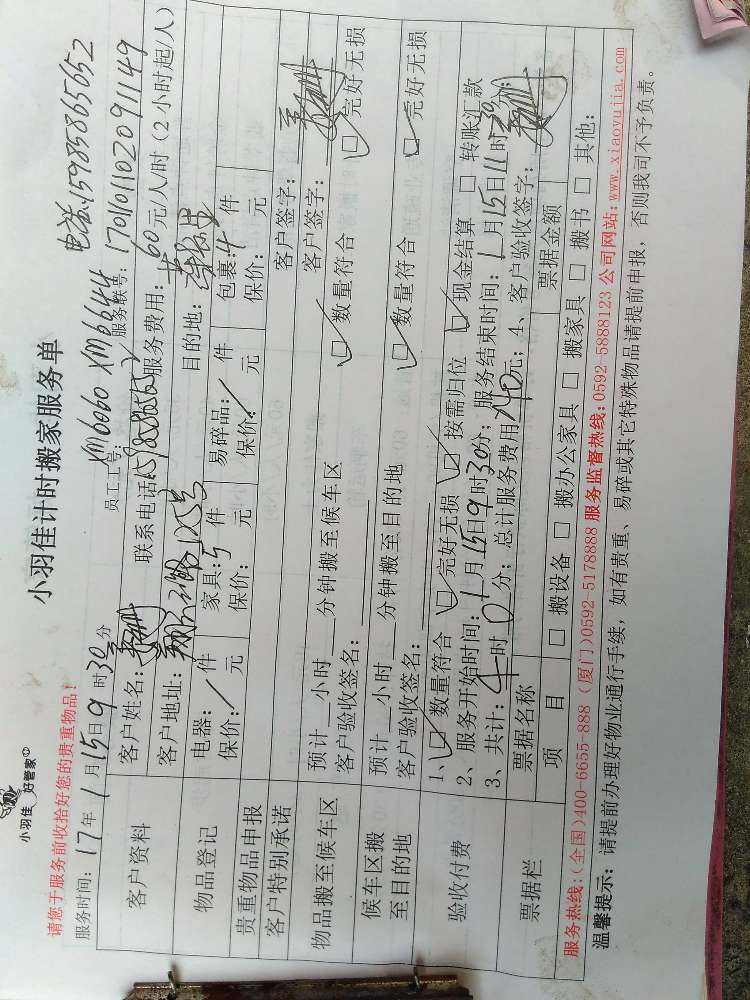 小羽佳 好管家
小羽佳计时搬家服务单
请您于服务前收拾好您的贵重物品!
员工工号: XM6060 XM6644 电话:15985865652
服务时间: 17年1月15日9时30分 服务联号: 170101102091149
客户资料
客户姓名: 联系电话: 服务费用: 60元/人/时(2小时起/人)
客户地址: 目的地:
物品登记
电器: / 件 家具: 5 件 易碎品: / 件 包裹: 4 件
保价: 元 保价: 元 保价: / 元 保价: 元
贵重物品申报
客户特别承诺 客户签字:
物品搬至候车区
预计__小时__分钟搬至候车区 客户签字:
客户验收签名: ☑数量符合 ☑完好无损
候车区搬至目的地
预计__小时__分钟搬至目的地
客户验收签名: ☑数量符合 ☑完好无损
验收付费
1、☑数量符合 ☑完好无损 ☑按需归位 ☑现金结算 □转账汇款
2、服务开始时间: 1月15日9时30分; 服务结束时间: 1月15日11时30
3、共计: 4时0分; 总计服务费用240元; 4、客户验收签字:
票据栏
票据名称 票据金额
项 目 □搬设备 □搬办公家具 □搬家具 □搬书 □其他:
服务热线:(全国)400-6655-888 (厦门)0592-5178888 服务监督热线:0592-5888123 公司网站:www.xiaoyujia.com
温馨提示: 请提前办理好物业通行手续, 如有贵重、易碎或其它特殊物品请提前申报, 否则我司不予负责。